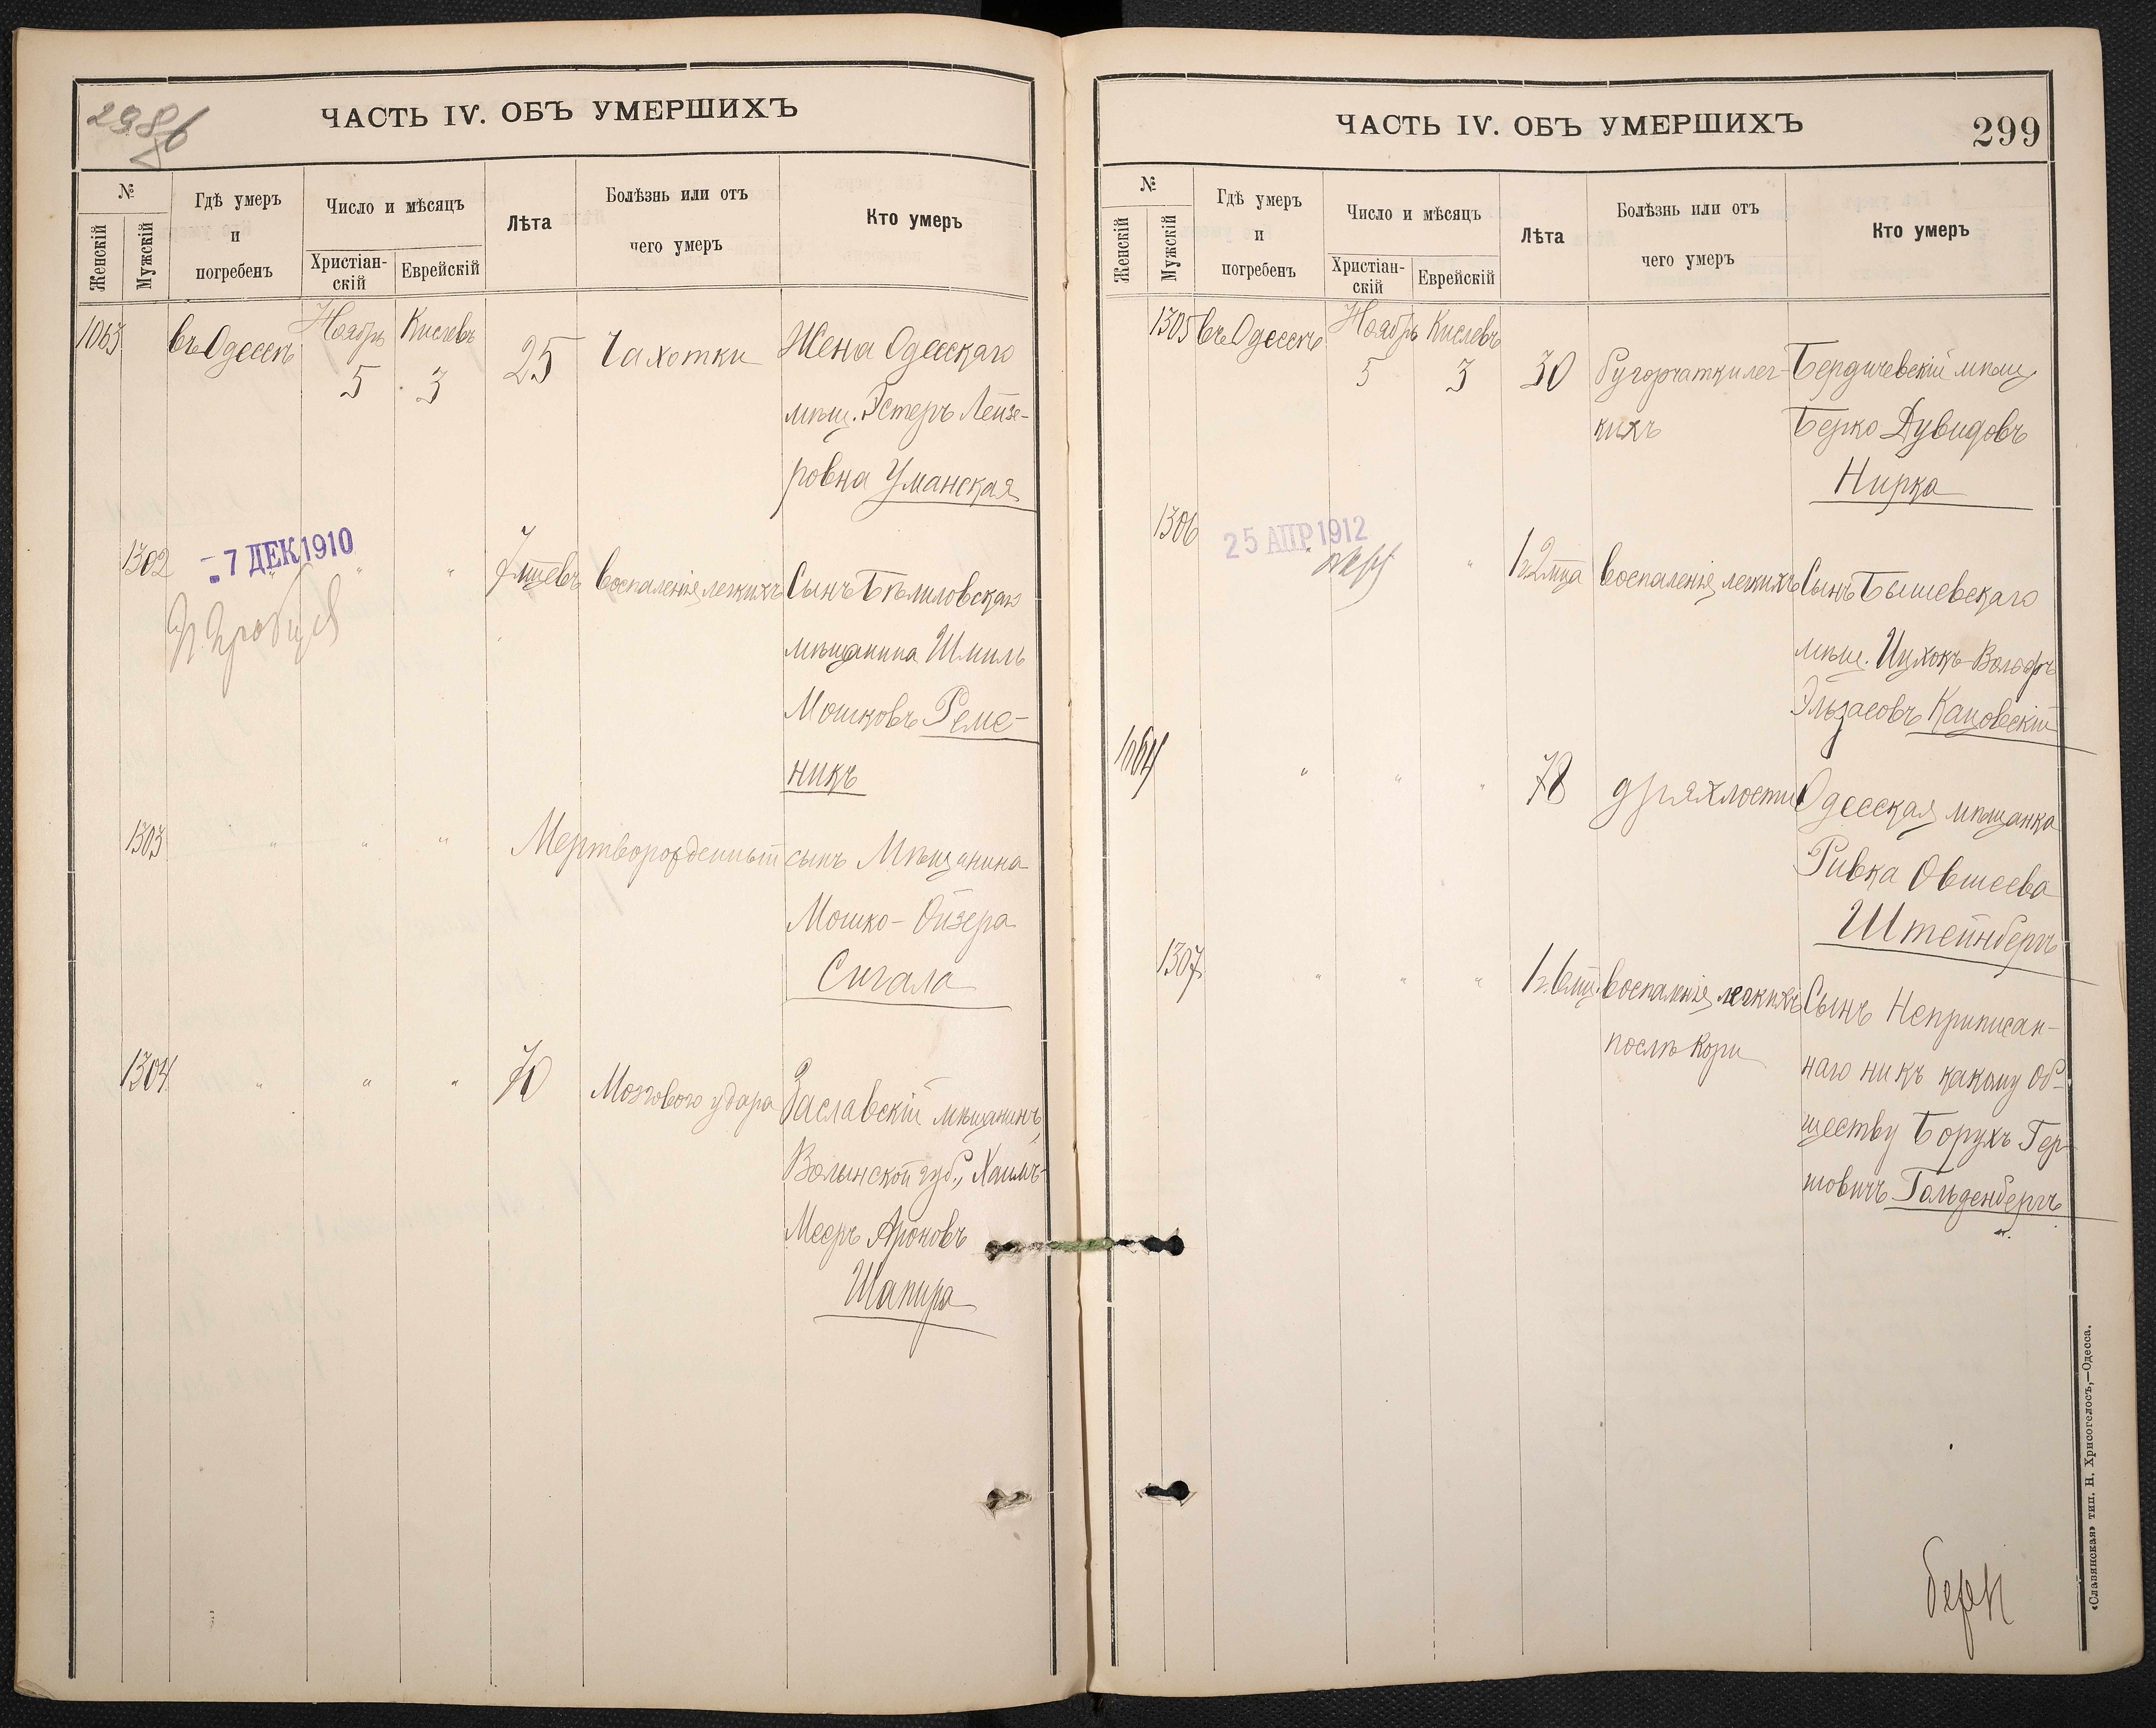 298б
ЧАСТЬ IV. ОБЪ УМЕРШИХЪ
№
Женскій
Мужскій
Гдѣ умеръ
и
погребенъ
Число и мѣсяцъ
Христіан-
скій
Еврейскій
Лѣта
Болѣзнь или отъ
чего умеръ
Кто умеръ
1063 въ Одессѣ Ноябрь 5 Кислевъ 3 25 Чахотки Жена Одесскаго
мѣщ. Эстеръ Лейзе-
ровна Уманская
1302 " " " 7 мцевъ воспаленія легкихъ Сынъ Бѣлиловскаго
7 ДЕК 1910
мѣщанина Шмиль
Мошковъ Реме-
никъ
1303 " " " Мертворожденный сынъ Мѣщанина
Мошко-Ойзера
Сигала
1304 " " " 70 Мозгового удара Заславскій мѣщанинъ,
Волынской губ., Хаимъ-
Мееръ Ароновъ
Шапира
ЧАСТЬ IV. ОБЪ УМЕРШИХЪ
299
№
Женскій
Мужскій
Гдѣ умеръ
и
погребенъ
Число и мѣсяцъ
Христіан-
скій
Еврейскій
Лѣта
Болѣзнь или отъ
чего умеръ
Кто умеръ
1305 въ Одессѣ Ноябрь 5 Кислевъ 3 30 бугорчатки лег- Бердичевскій мѣщ
кихъ Берко Дувидовъ
Нирка
1306 " " 1 г. 2 мца воспаленія легкихъ Сынъ Бышевскаго
25 АПР 1912
мѣщ. Ицхокъ-Вольфъ
Эльзасовъ Кацовскій
1064 " " " 78 дряхлости Одесская мѣщанка
Ривка Овшеева
Штейнбергъ
1307 " " " 1 г. 6 мц. воспаленія легкихъ Сынъ Неприписан-
послѣ кори наго ни къ какому об-
ществу Борухъ Гер-
шовичъ Гольденбергъ
«Славянская» тип. Н. Хрисогелосъ,—Одесса.